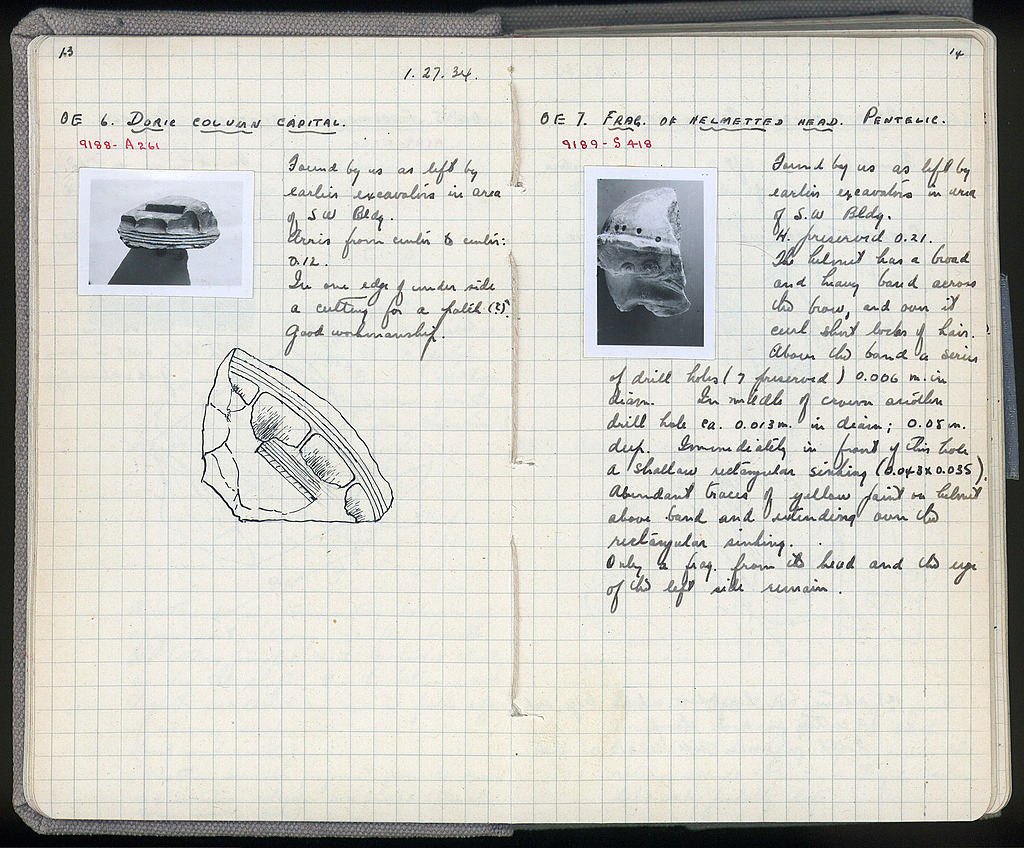 13
1.27.34.
OE 6. DORIC COLUMN CAPITAL.
9188- A 261
Found by us as left by
earlier excavators in area
of S.W Bldg.
Arris from center to center:
0.12.
In one edge of under side
a cutting for a patch (?).
Good workmanship.
14
OE 7. FRAG. OF HELMETTED HEAD. PENTELIC.
9189-S 418
Found by us as left by
earlier excavators in area
of S.W Bldg.
H. preserved 0.21.
The helmet has a broad
and heavy band across
the brow, and over it
curl short locks of hair.
Above the band a series
of drill holes (7 preserved) 0.006 m. in
diam. In middle of crown another
drill hole ca. 0.013m. in diam; 0.05m.
deep. Immediately in front of this hole
a shallow rectangular sinking (0.043x0.035).
Abundant traces of yellow paint on helmet
above band and extending over the
rectangular sinking.
Only a frag. from the head and the eye
of the left side remain.